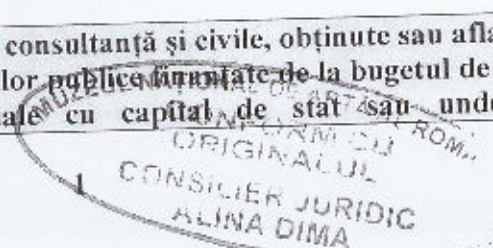 consultanță și civile, obținute sau afla
lor publice finanțate de la bugetul de
ale cu capital de stat sau und
MUZEUL NAȚIONAL DE ARTĂ AL ROM
CONFORM CU
ORIGINALUL
1
CONSILIER JURIDIC
ALINA DIMA